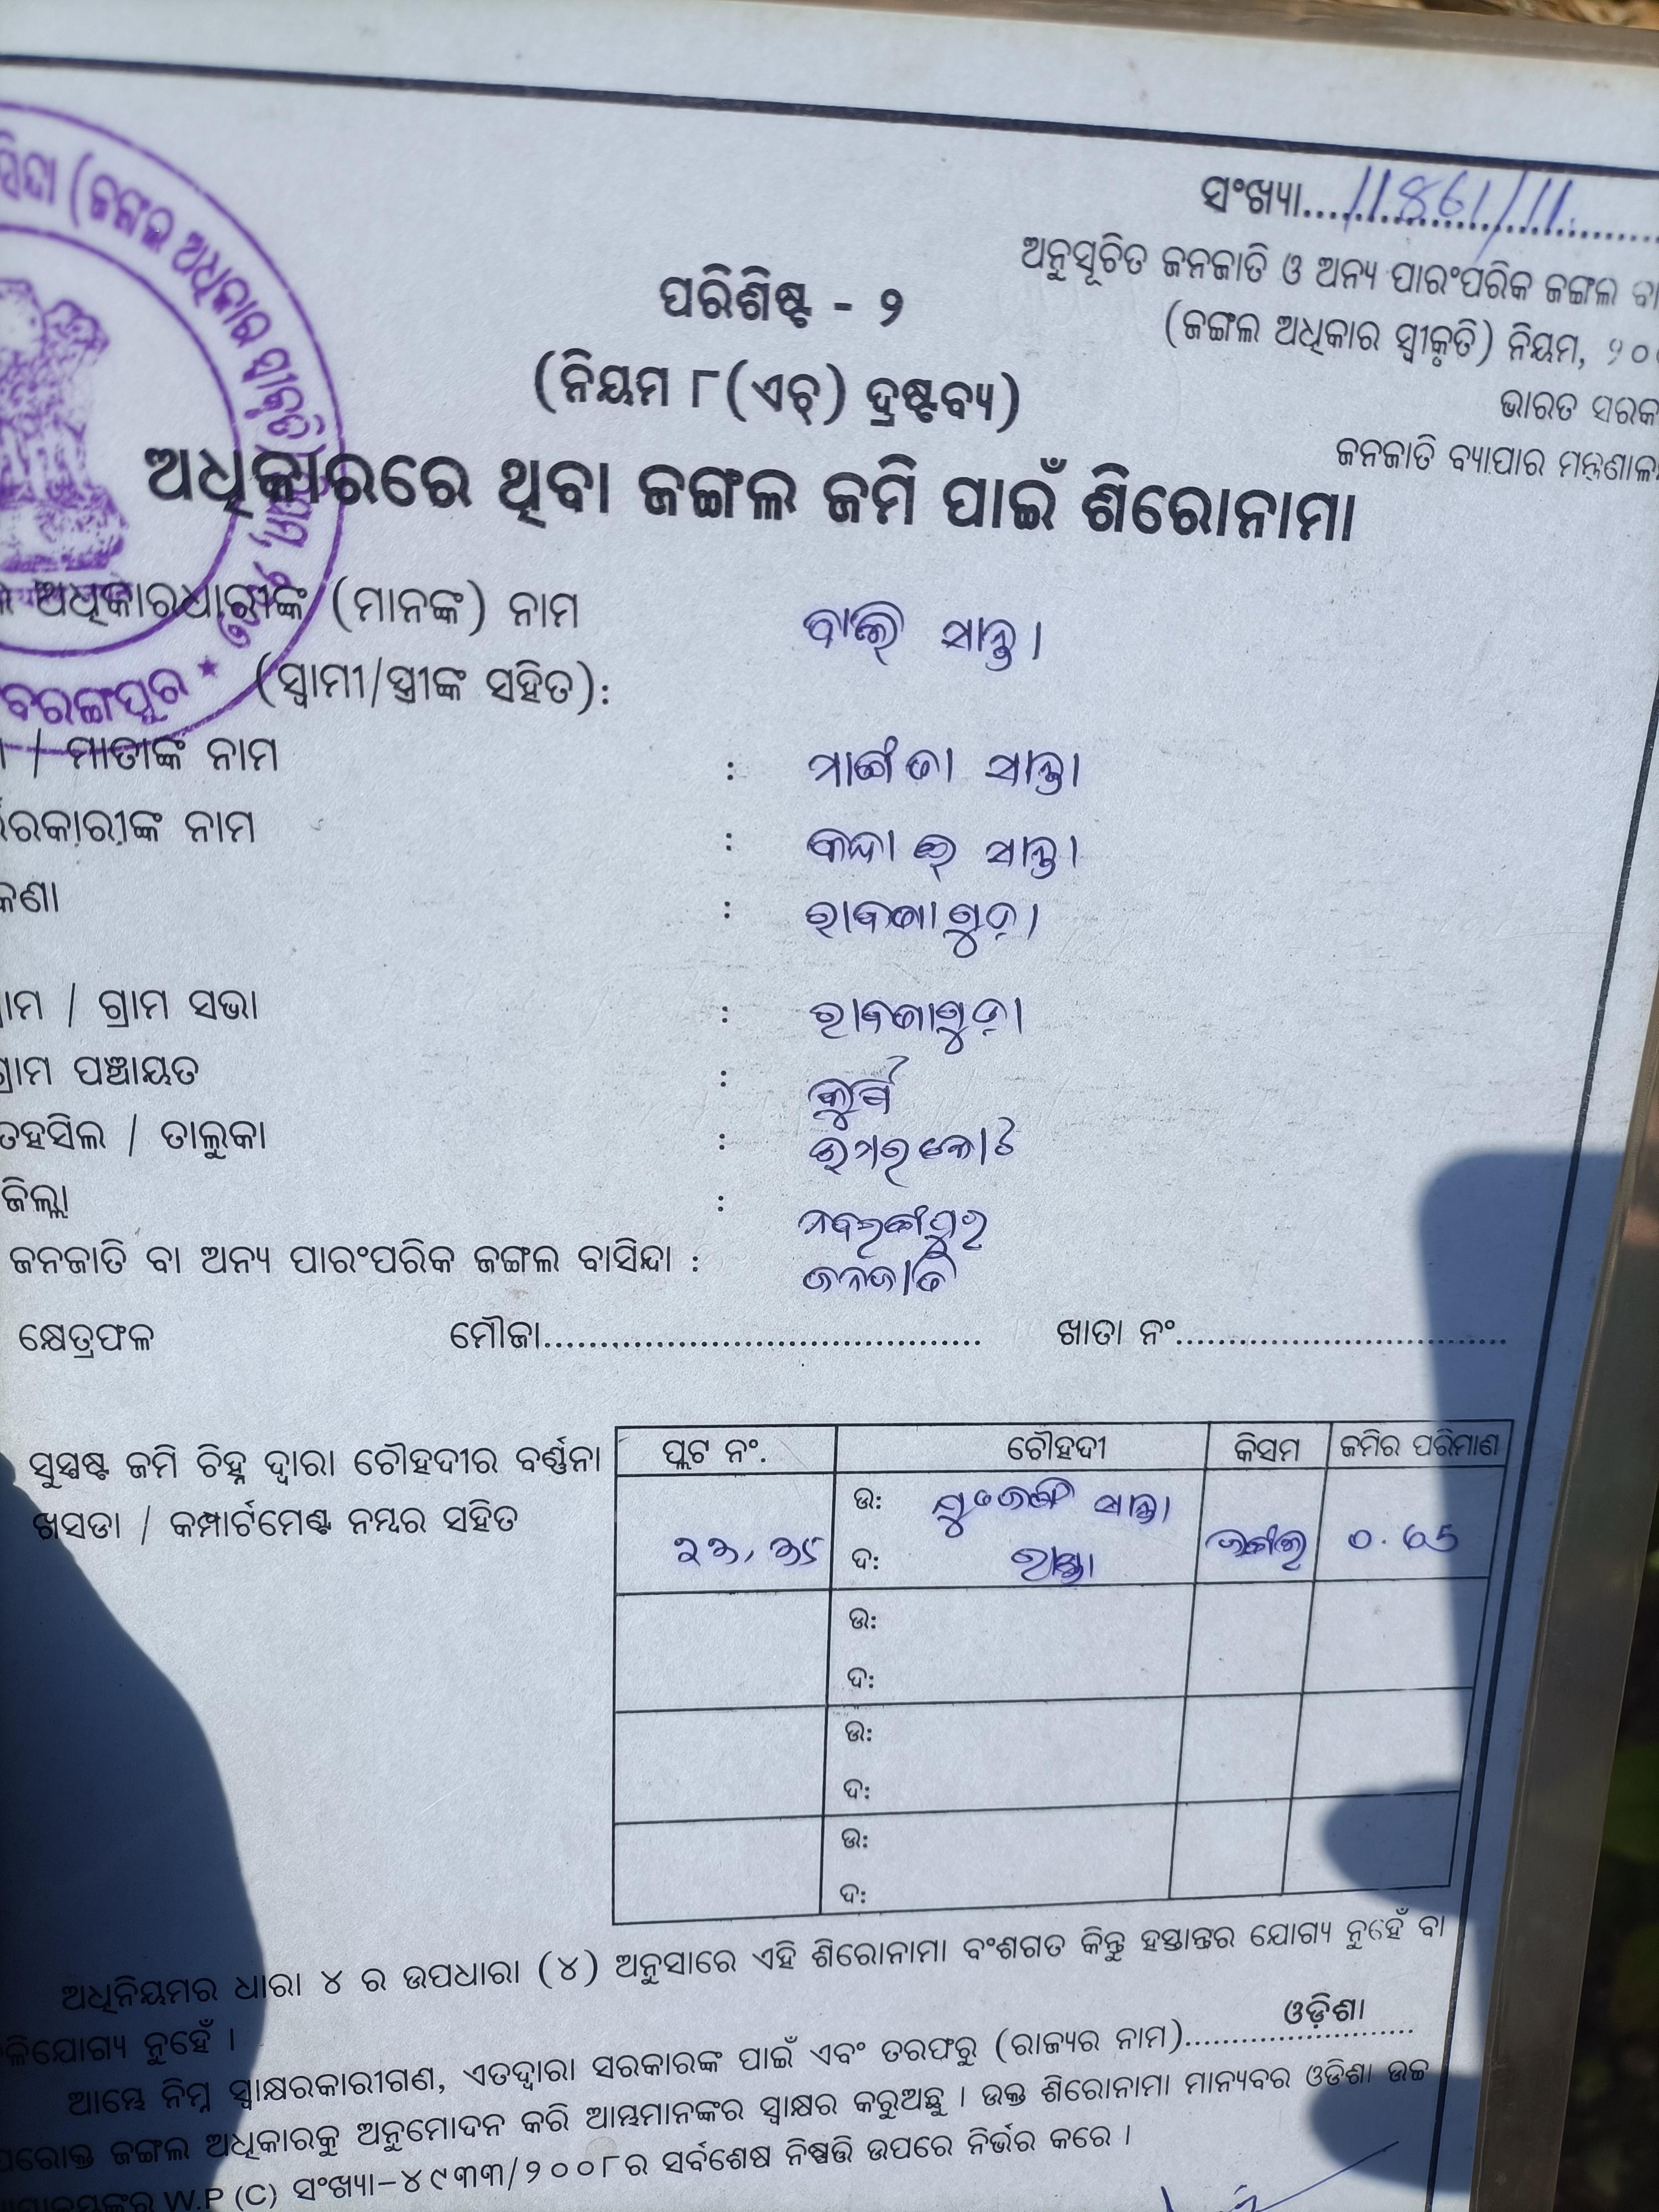 ସଂଖ୍ୟା.....11861/11.....
ଅନୁସୂଚିତ ଜନଜାତି ଓ ଅନ୍ୟ ପାରଂପରିକ ଜଙ୍ଗଲ ବା
(ଜଙ୍ଗଲ ଅଧିକାର ସ୍ୱୀକୃତି) ନିୟମ, ୨୦
ଭାରତ ସରକା
ଜନଜାତି ବ୍ୟାପାର ମନ୍ତ୍ରଣାଳ
ପରିଶିଷ୍ଟ - ୨
(ନିୟମ ୮(ଏଚ୍) ଦ୍ରଷ୍ଟବ୍ୟ)
ଅଧିକାରରେ ଥିବା ଜଙ୍ଗଲ ଜମି ପାଇଁ ଶିରୋନାମା
(ଜଙ୍ଗଲ ଅଧିକାର ସ୍ୱୀକୃତି
ବରଙ୍ଗପୁର ★
ଅଧିକାରଧାରୀଙ୍କ (ମାନଙ୍କ) ନାମ ସାନ୍ତା
(ସ୍ୱାମୀ/ସ୍ତ୍ରୀଙ୍କ ସହିତ):
/ ମାତାଙ୍କ ନାମ : ସାନ୍ତା
ରକାରୀଙ୍କ ନାମ : ସାନ୍ତା
କଣା : ରାବଣାଗୁଡ଼ା
ାମ / ଗ୍ରାମ ସଭା : ରାବଣାଗୁଡ଼ା
ଗ୍ରାମ ପଞ୍ଚାୟତ :
ତହସିଲ / ତାଲୁକା : ଉମରକୋଟ
ଜିଲ୍ଲା : ନବରଙ୍ଗପୁର
ଜନଜାତି ବା ଅନ୍ୟ ପାରଂପରିକ ଜଙ୍ଗଲ ବାସିନ୍ଦା : ଜନଜାତି
କ୍ଷେତ୍ରଫଳ ମୌଜା..................... ଖାତା ନଂ.....................
ସୁସ୍ପଷ୍ଟ ଜମି ଚିହ୍ନ ଦ୍ୱାରା ଚୌହଦୀର ବର୍ଣ୍ଣନା
ଖସଡା / କମ୍ପାର୍ଟମେଣ୍ଟ ନମ୍ବର ସହିତ
ପ୍ଲଟ ନଂ. ଚୌହଦୀ କିସମ ଜମିର ପରିମାଣ
ଉ: ସାନ୍ତା
ଦ: ରାସ୍ତା ଜଙ୍ଗଲ 0.65
ଉ:
ଦ:
ଉ:
ଦ:
ଉ:
ଦ:
ଅଧିନିୟମର ଧାରା ୪ ର ଉପଧାରା (୪) ଅନୁସାରେ ଏହି ଶିରୋନାମା ବଂଶଗତ କିନ୍ତୁ ହସ୍ତାନ୍ତର ଯୋଗ୍ୟ ନୁହେଁ ବା
ଳିଯୋଗ୍ୟ ନୁହେଁ ।
ଆମ୍ଭେ ନିମ୍ନ ସ୍ୱାକ୍ଷରକାରୀଗଣ, ଏତଦ୍ୱାରା ସରକାରଙ୍କ ପାଇଁ ଏବଂ ତରଫରୁ (ରାଜ୍ୟର ନାମ)......ଓଡ଼ିଶା......
ପରୋକ୍ତ ଜଙ୍ଗଲ ଅଧିକାରକୁ ଅନୁମୋଦନ କରି ଆମ୍ଭମାନଙ୍କର ସ୍ୱାକ୍ଷର କରୁଅଛୁ । ଉକ୍ତ ଶିରୋନାମା ମାନ୍ୟବର ଓଡିଶା ଉଚ୍ଚ
W.P (C) ସଂଖ୍ୟା-୪୯୩୩/୨୦୦୮ର ସର୍ବଶେଷ ନିଷ୍ପତ୍ତି ଉପରେ ନିର୍ଭର କରେ ।